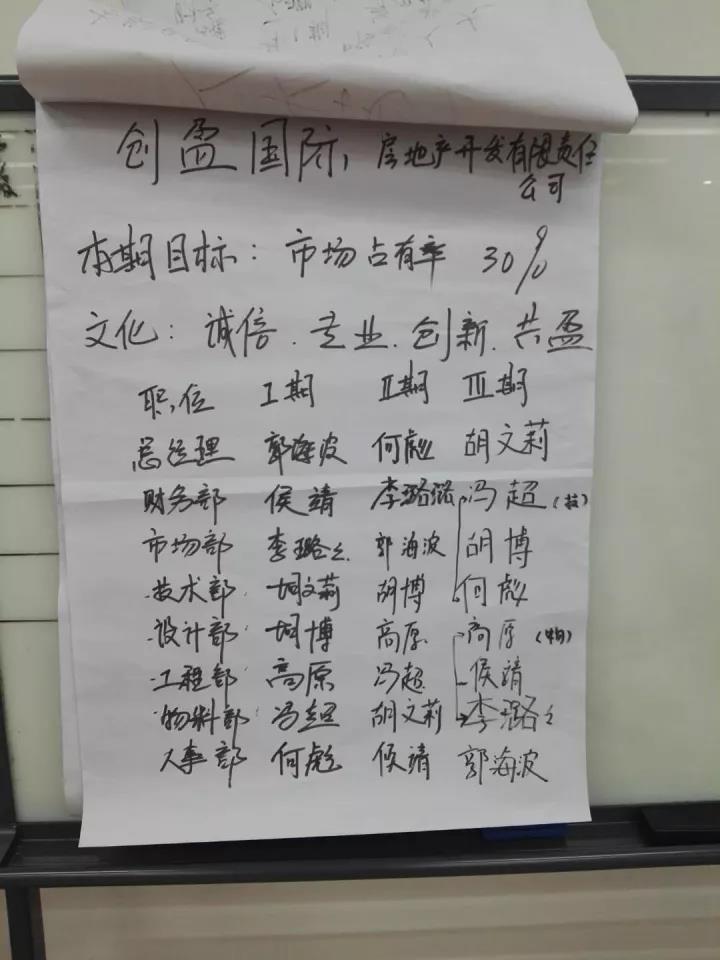 创盈国际,房地产开发有限责任
公司
本期目标:市场占有率 30%
文化:诚信.专业.创新.共盈
职位 I期 II期 III期
总经理 郭海波 何彪 胡文莉
财务部 侯靖 李璐璐 冯超(技)
市场部 李璐々 郭海波 胡博
技术部 胡文莉 胡博 何彪
设计部 胡博 高原 高原(物)
工程部 高原 冯超 侯靖
物料部 冯超 胡文莉 李璐々
人事部 何彪 侯靖 郭海波